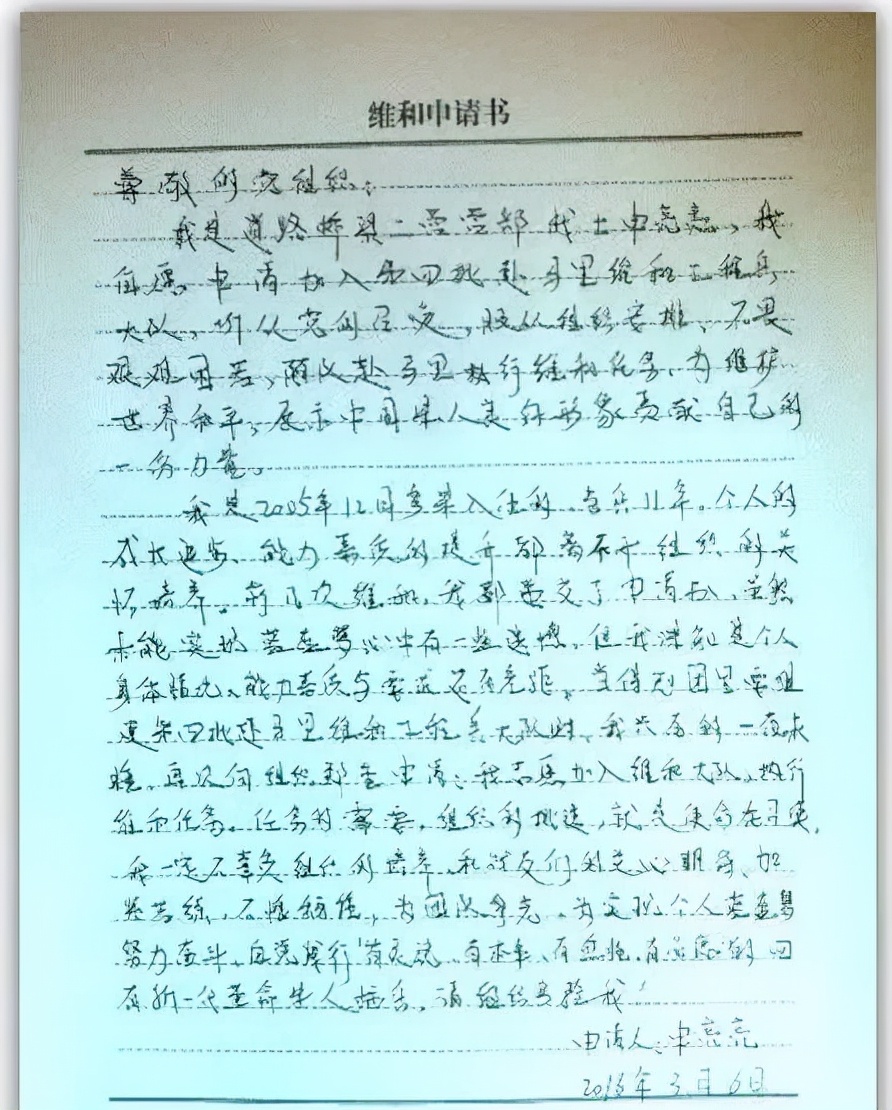 维和申请书
尊敬的党组织：
我是道路桥梁二营营部战士申亮亮，我
自愿申请加入第四批赴马里维和工程兵
大队，听从党的召唤，服从组织安排、不畏
艰难困苦，随队赴马里执行维和任务，为维护
世界和平，展示中国军人美好形象贡献自己的
一份力量。
我是2005年12月参军入伍的，当兵11年。个人的
成长进步、能力素质的提升都离不开组织的关
怀培养。前几次维和，我都递交了申请书，虽然
未能实现蓝盔梦心中有一些遗憾，但我深知是个人
身体状况、能力素质与要求还有差距。当得知团里要组
建第四批赴马里维和工程兵大队时，我兴奋的一夜未
睡。再次向组织郑重申请：我志愿加入维和大队，执行
维和任务。任务的需要，组织的挑选，就是使命在召唤，
我一定不辜负组织的培养和战友们的关心期待、加
强苦练，不怕牺牲，为团队争光，为实现个人蓝盔梦
努力奋斗，自觉践行有灵魂、有本事、有血性、有品德的四
有新一代革命军人标准，请组织考验我！
申请人：申亮亮
2016年3月6日